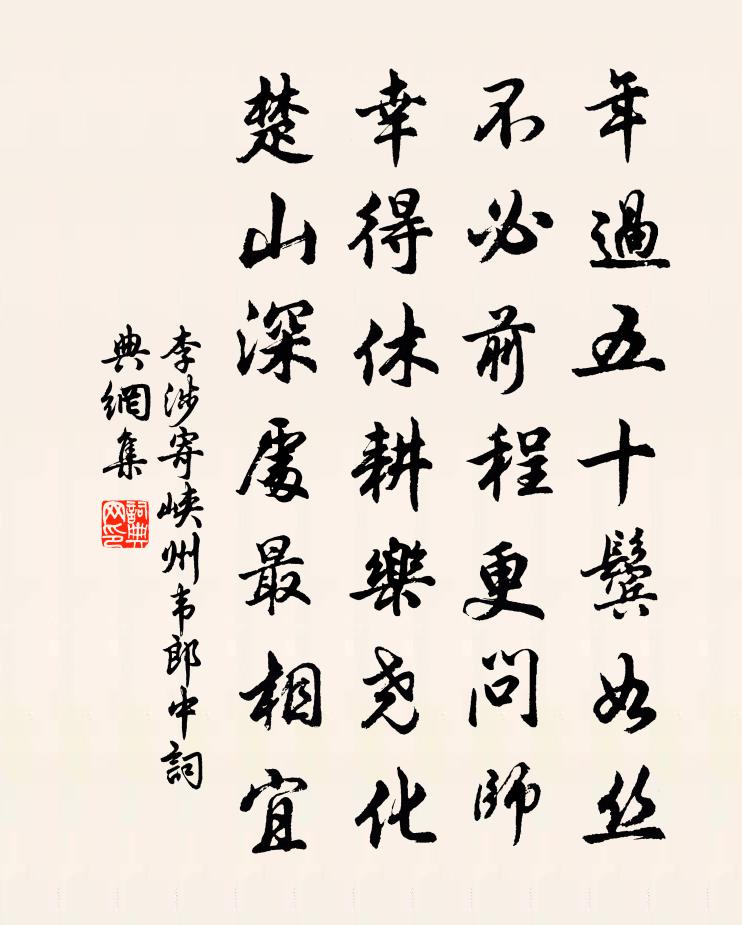 年過五十鬢如丝
不必前程更問師
幸得休耕樂尧化
楚山深處最相宜
李涉寄峡州韦郎中詞
典網集
詞典
网印